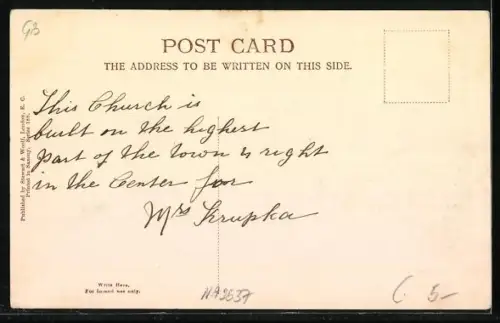 GB
POST CARD
THE ADDRESS TO BE WRITTEN ON THIS SIDE.
This Church is
built on the highest
part of the town & right
in the Center for
Mrs Krupka
Published by Stewart & Woolf, London, E. C.
Printed in Saxony. Series 148.
Write Here,
For Inland use only.
NA9637
C 5-